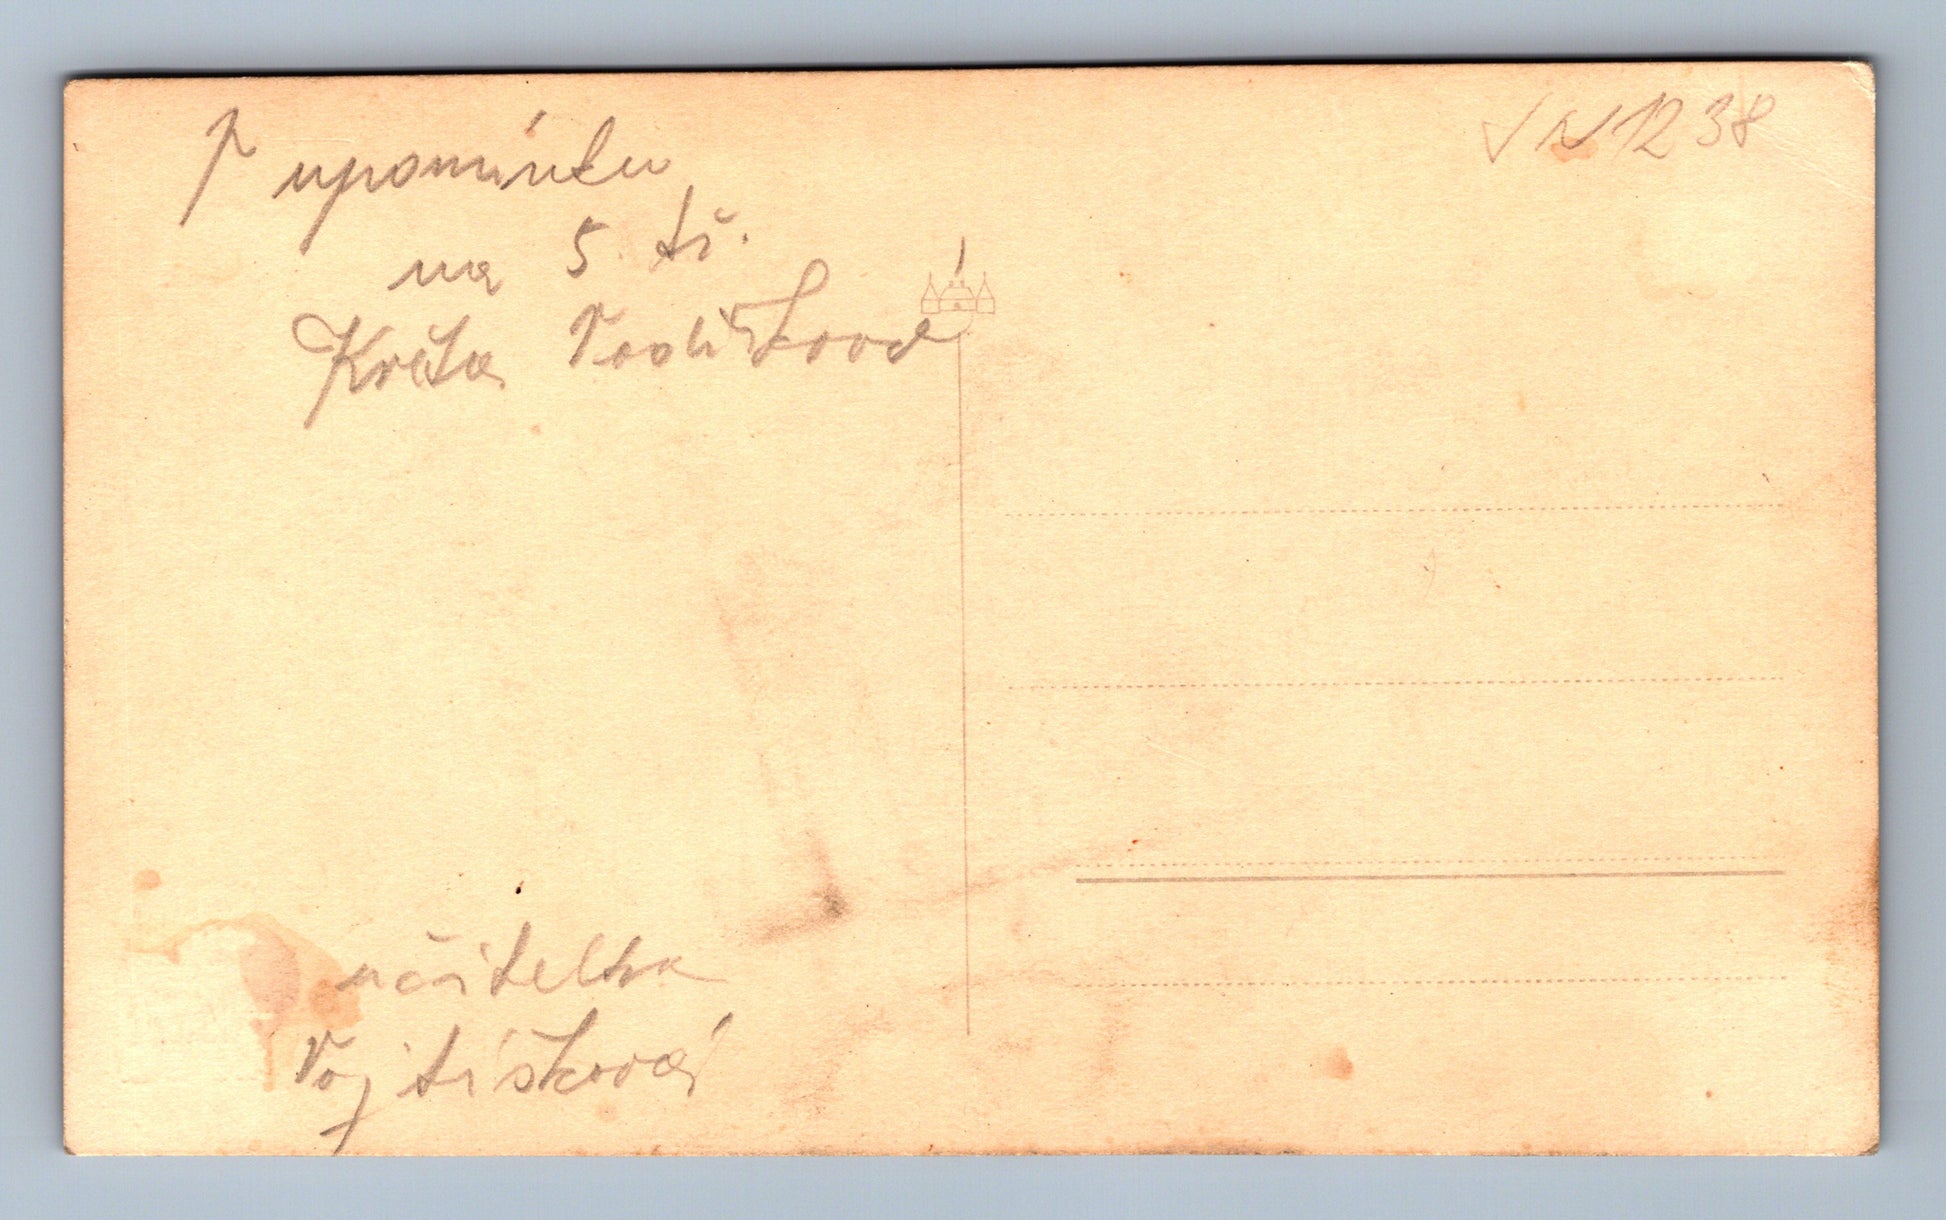 V N 12 38
P upomínku
na 5. tř.
Květa Vodičková
učitelka
Vojtíšková